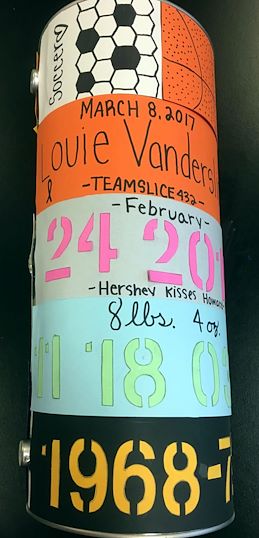 Soccer
MARCH 8, 2017
Louie
-TEAMSLICE432-
-February-
24 20
-Hershey Kisses
8 lbs. 4 oz.
11 18 0
1968-7